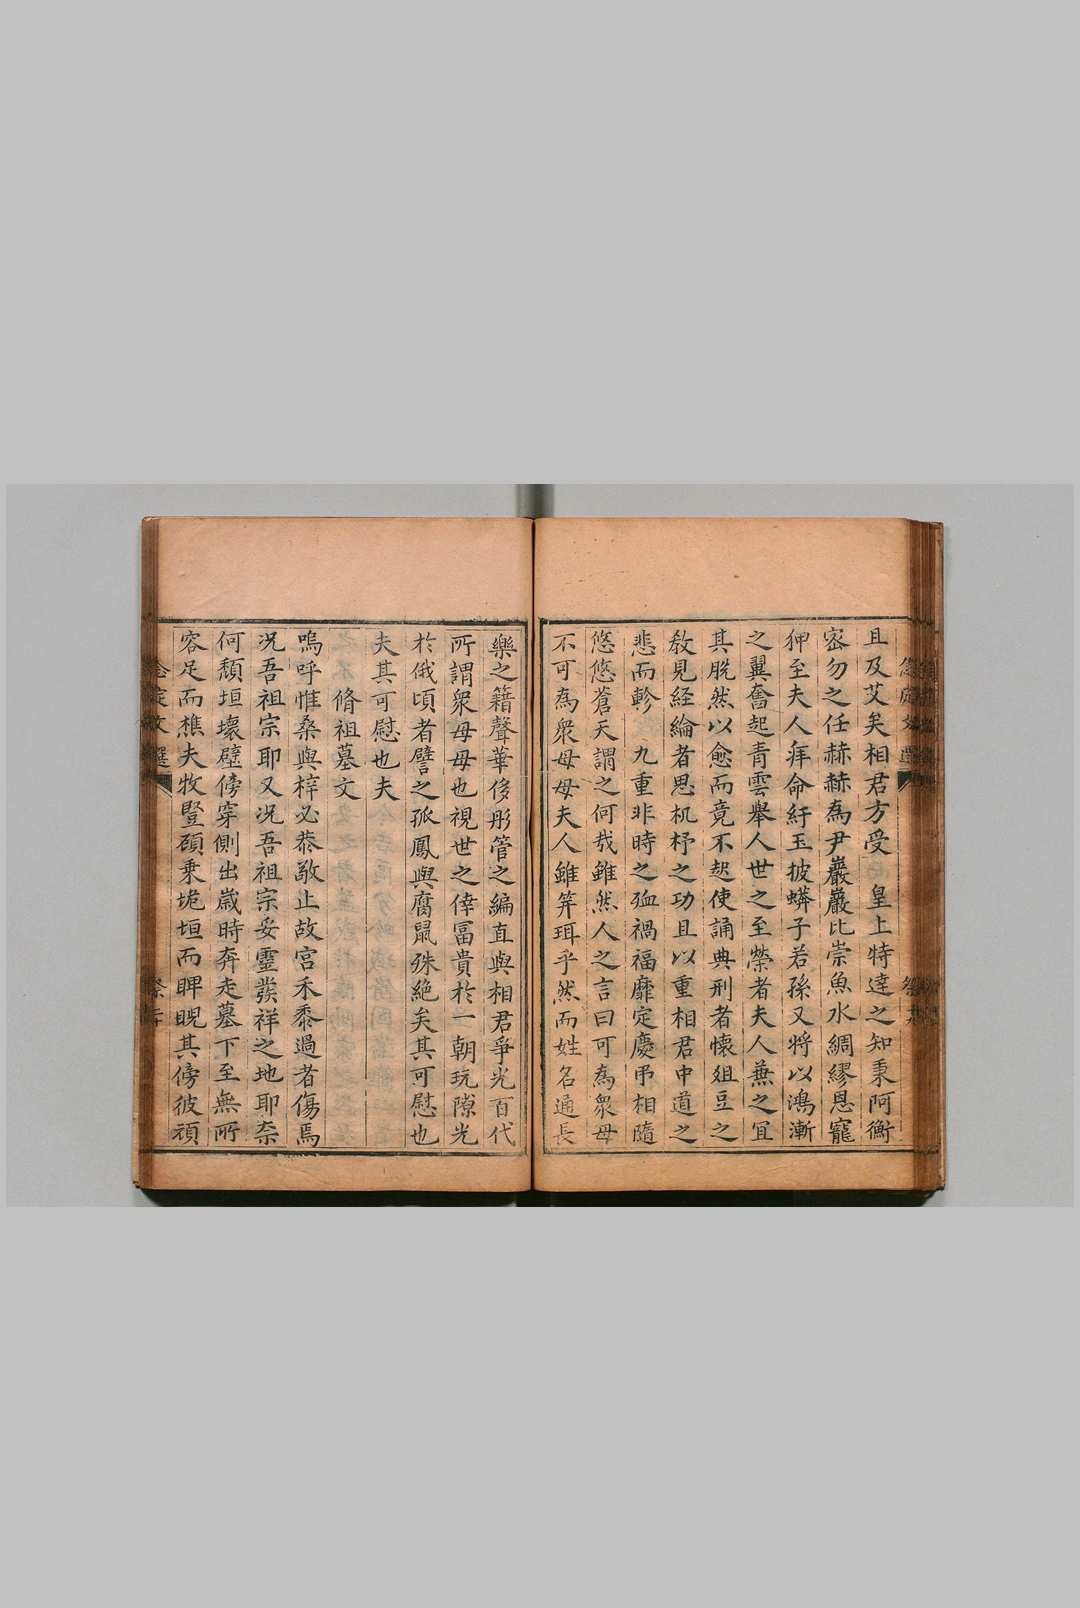 且及艾矣相君方受 皇上特達之知秉阿衡
宻勿之任赫赫為尹巖巖比崇魚水綢繆恩寵
狎至夫人拜命紆玉披蟒子若孫又將以鴻漸
之翼奮起青雲舉人世之至榮者夫人兼之冝
其脫然以愈而竟不起使誦典刑者懷俎豆之
敎見経綸者思机杼之功且以重相君中道之
悲而軫 九重非時之卹禍福靡定慶弔相隨
悠悠蒼天謂之何㦲雖然人之言曰可為衆母
不可為衆母母夫人雖笄珥乎然而姓名通長
樂之籍聲華侈彤管之編直與相君爭光百代
所謂衆母母也視世之倖冨貴於一朝玩隙光
於俄頃者譬之孤鳳與腐鼠殊絶矣其可慰也
夫其可慰也夫
脩祖墓文
嗚呼惟桑與梓必恭敬止故宫禾黍過者傷焉
况吾祖宗耶又况吾祖宗妥靈發祥之地耶奈
何頽垣壞壁傍穿側出嵗時奔走墓下至無所
容足而樵夫牧豎頋乗垝垣而睥睨其傍彼頑